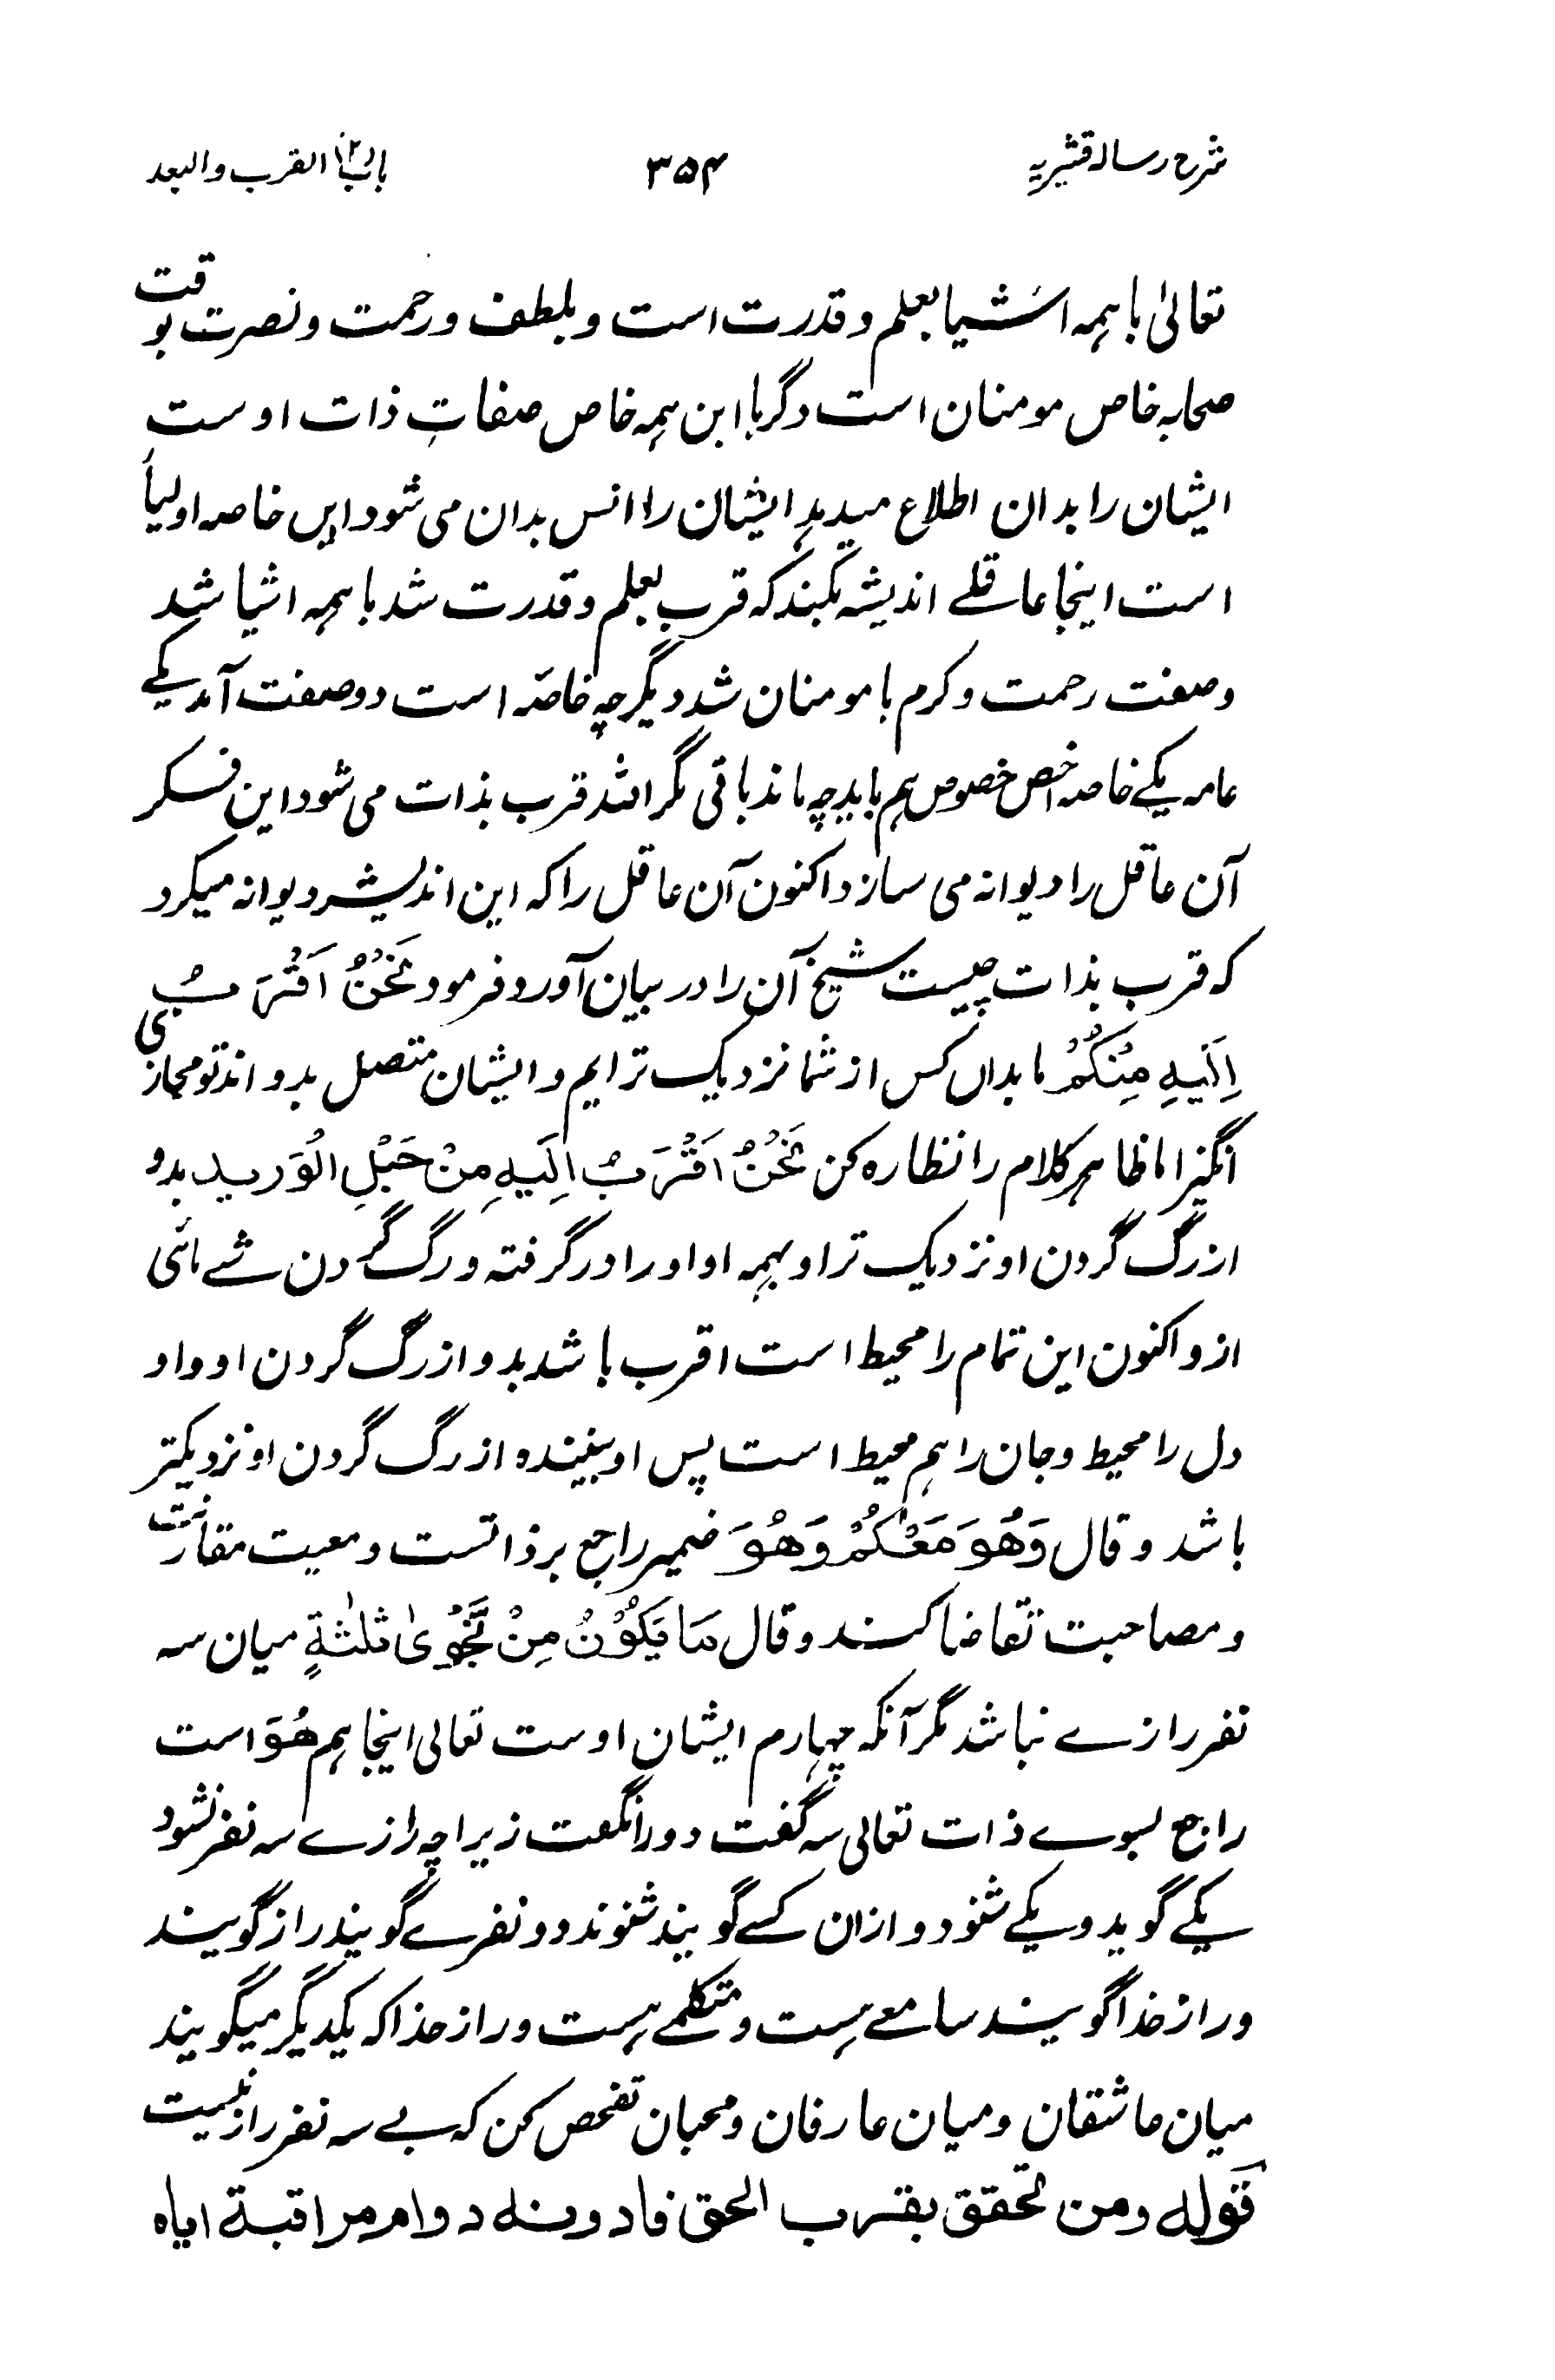 شرح رسالہ قشیریہ ۳۵۴ باب(۲) القرب والبعد
تعالیٰ باہمہ اشیا بعلم و قدرت است و بلطف و رحمت و نصرت بوقت
صحابہ خاص مومنان است دگر با این ہمہ خاص صفاتِ ذات اوست
ایشان را بدان اطلاع میدہد ایشان را انس بدان می شود این خاصہ اولیاً
است اینجا عاقلے اندیشہ بکند کہ قرب بعلم و قدرت شد باہمہ اشیا شد
وصفت رحمت و کرم با مومنان شد دیگر چہ خاصّہ است دو صفت آمد یکے
عامہ یکے خاصہ اخص خصوص ہم باید چہ ماند باقی مگر انٹد قرب بذات می شود این فسکر
آن عاقل را دیوانہ می سازد اکنون آن عاقل را کہ این اندیشہ دیوانہ میکرد
کہ قرب بذات چیست شیخ آن را در بیان آورد فرمود نَحْنُ اَقْرَبُ
اِلَیهِ مِنکُمْ ما بداں کس از شما نزدیک تر ایم و ایشان متصل بدو اند تو مجازی
انگیز اما ظاہر کلام را نظارہ کن نَحْنُ اَقْرَبُ اِلَیهِ مِنْ حَبْلِ الْوَرید بدو
از رگ گردن او نزدیک تر او بہمہ او او را در گرفتہ و رگ گردن شے مائی
ازو اکنون این تمام را محیط است اقرب باشد بدو از رگ گردن او واو
دل را محیط و جان را ہم محیط است پس او ببیندہ از رگ گردن او نزدیکتر
باشد و قال وَهُوَ مَعَکُمْ وَهُوَ ضمیر راجع بر ذاتست و معیت مقارنت
و مصاحبت تقاضا کند و قال مَا یَکُوْنُ مِنْ نَّجْوٰی ثَلٰثَةٍ میان سہ
نفر رازے نباشد مگر آنکہ چہارم ایشان اوست تعالی اینجا ہم هُوَ است
راجع بسوے ذات تعالی سہ گفت دو را نگفت زیرا چہ رازے سہ نفر نشود
یکے گوید و یکے شنود و ازان کسے گویند شنوند دو نفرے گویند راز گویند
و راز خدا گویند سامعے ہست و متکلمے ہست و راز خدا کہ یکدیگر میگویند
میان عاشقان و میان عارفان و محبان تفحص کن کہ بے سہ نفر راز نیست
قولہ ومن تحقق بقرب الحق فادونہ دوام مراقبة ایاہ